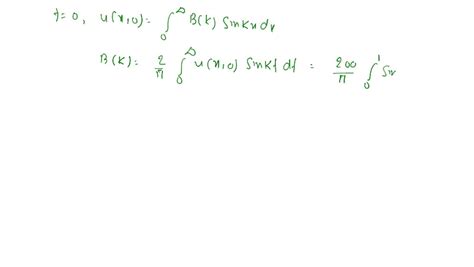 t=0, u(x,0)= ∫₀^∞ B(k) Sinkx dx
B(k)= 2/π ∫₀^∞ u(x,0) Sinkf df = 200/π ∫₀^1 Sin